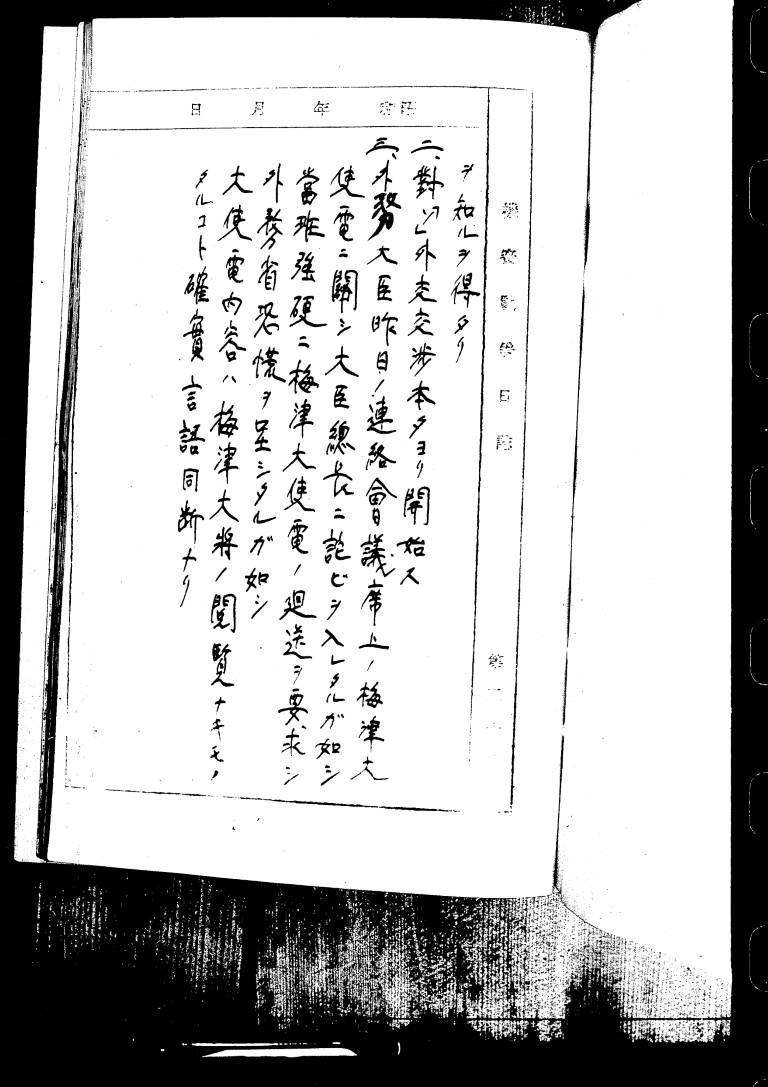 機密戦争日誌
第一
昭和 年 月 日
ヲ知ルヲ得タリ
二、對「ソ」外交交渉本夕ヨリ開始ス
三、外務大臣昨日ノ連絡會議席上ノ梅津大
使電ニ關シ大臣總長ニ詫ビヲ入レタルガ如シ
當班強硬ニ梅津大使電ノ廻送ヲ要求シ
外務省恐慌ヲ呈シタルガ如シ
大使電内容ハ梅津大將ノ閲覧ナキモノ
タルコト確實言語同断ナリ